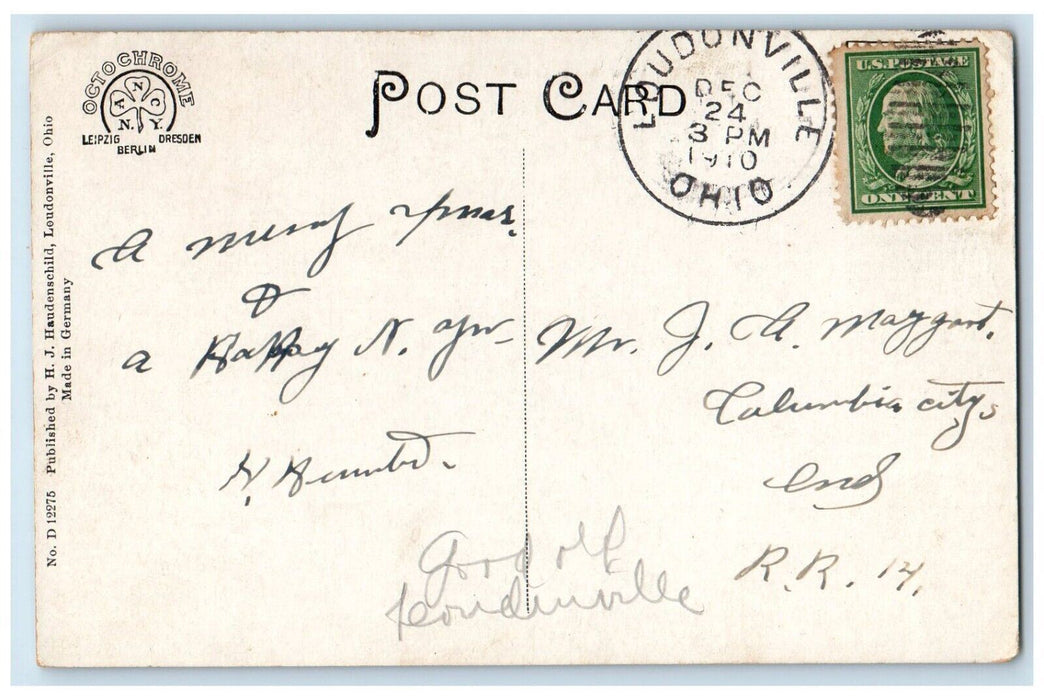 OCTOCHROME
ANC
N.Y.
LEIPZIG DRESDEN
BERLIN
POST CARD
LOUDONVILLE
DEC
24
3 PM
1910
OHIO
U.S. POSTAGE
ONE CENT
No. D 12275 Published by H. J. Haudenschild, Loudonville, Ohio
Made in Germany
A merry Xmas,
&
a Happy N. Yr
Mr. J. A. Maggart,
Columbia City,
Ind
R. R. 14,
Good old
Loudinville